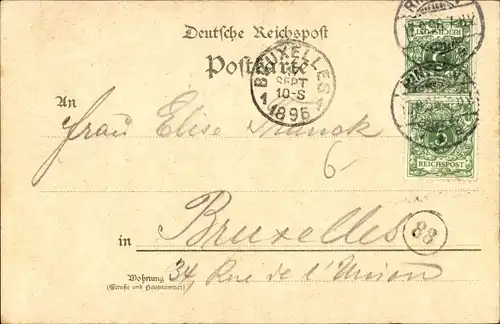 Deutsche Reichspost
Postkarte
BRUXELLES
SEPT
10-S
1 1895 1
REICHSPOST
5
REICHSPOST
An
Frau Elise
6-
in Bruxelles
88
Wohnung 34, Rue de l'Union
(Straße und Hausnummer)